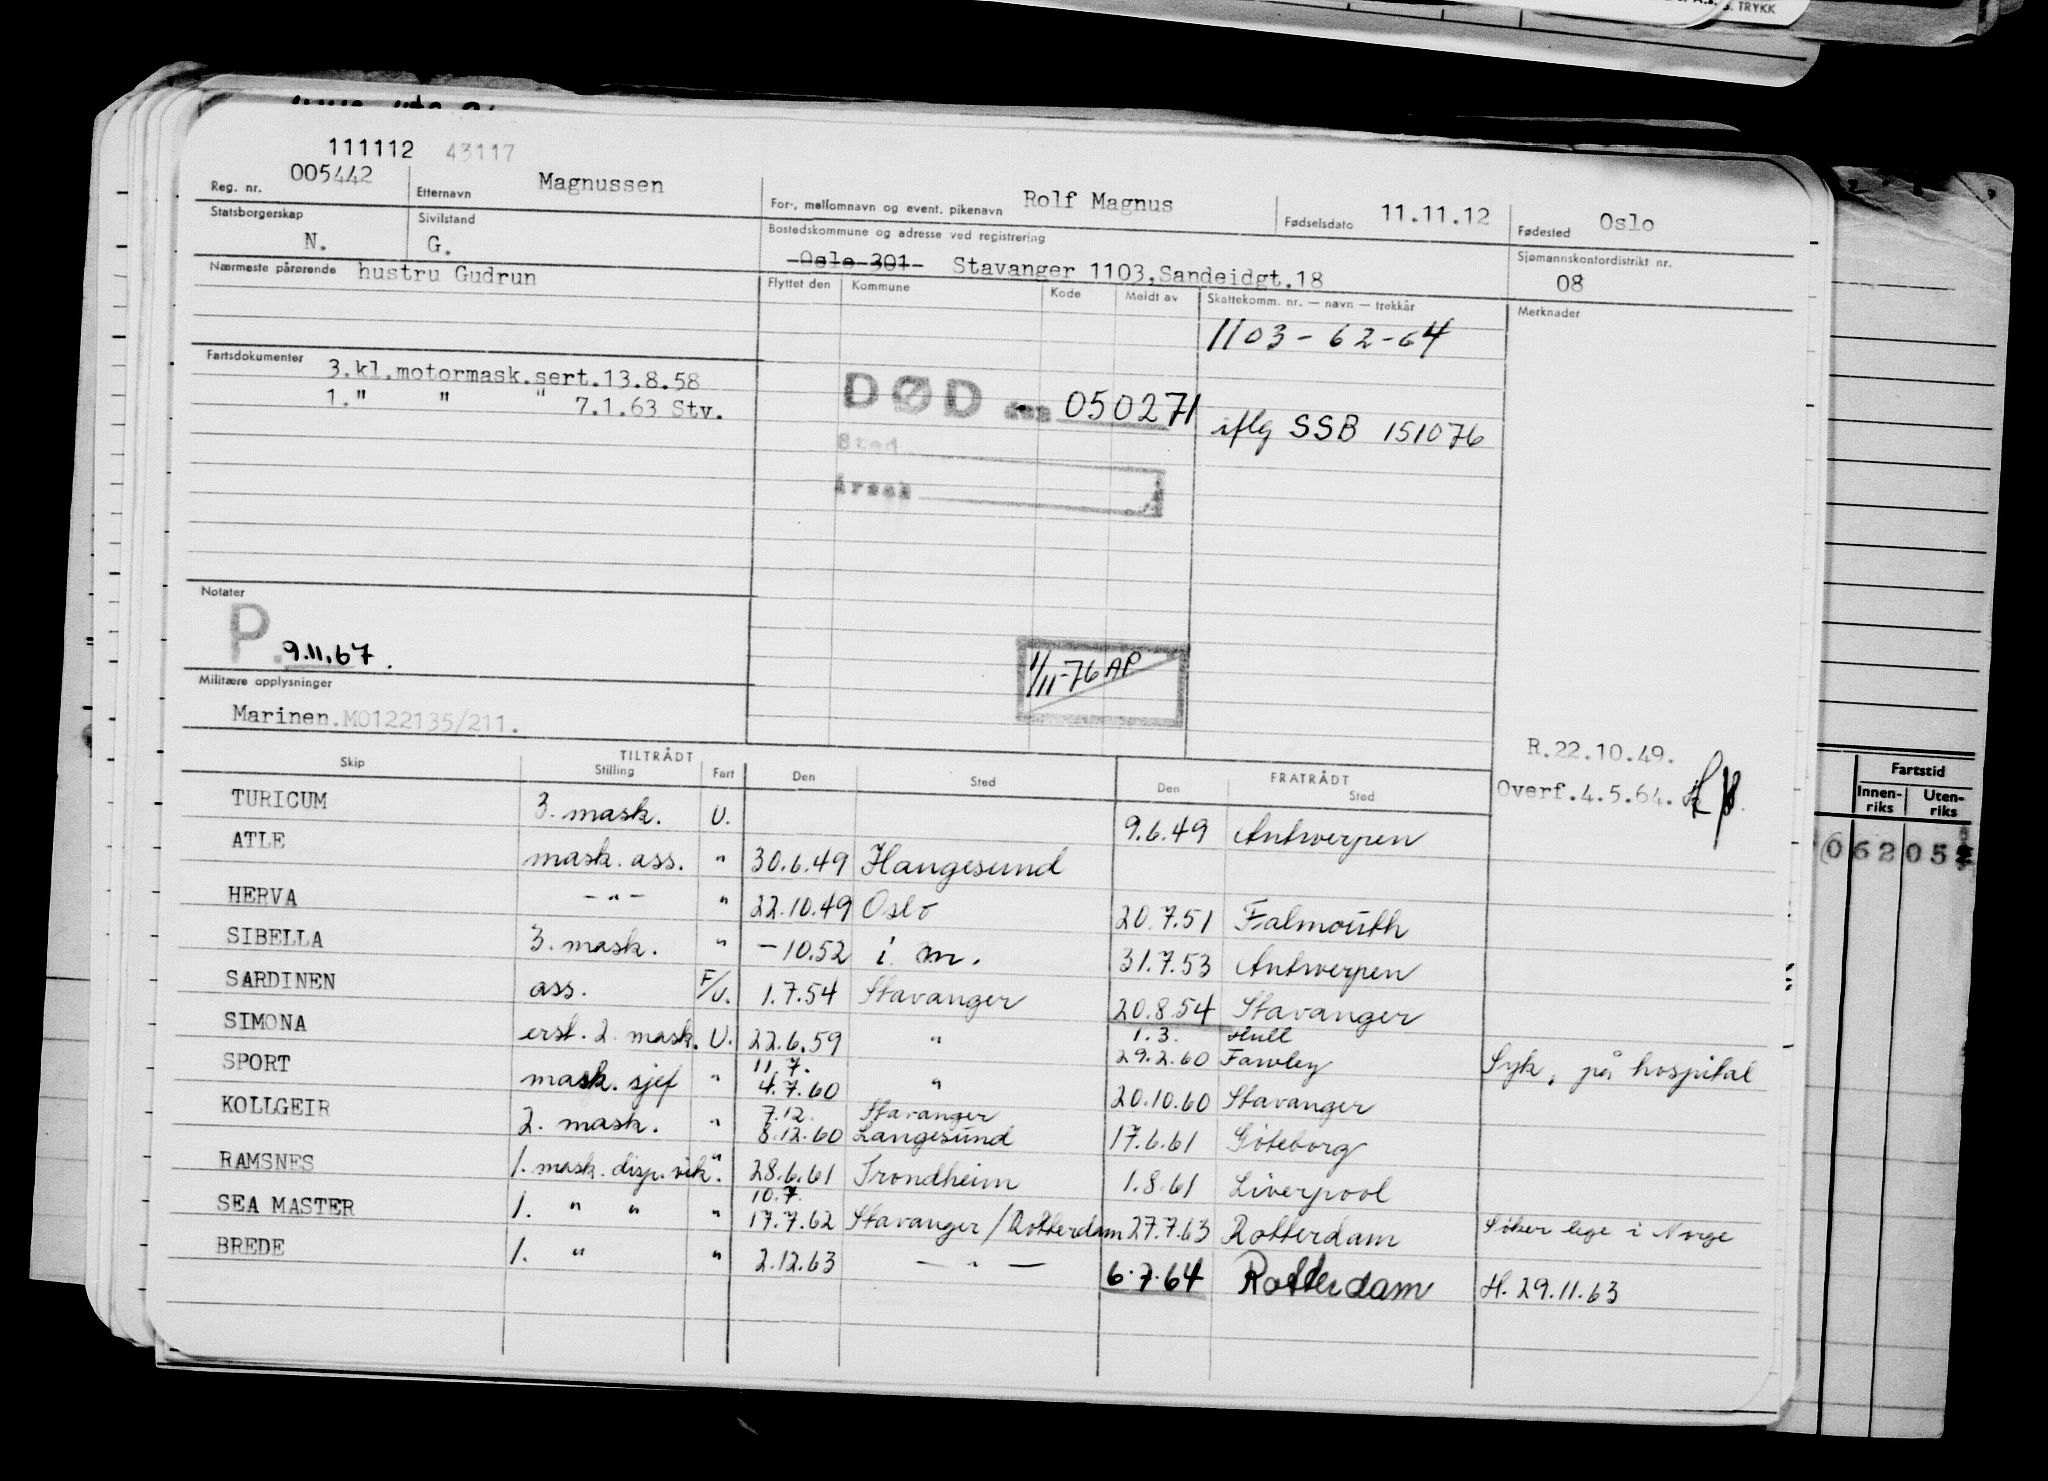 TRYKK
111112 43117
Reg. nr. 005442 Etternavn Magnussen For-, mellomnavn og event. pikenavn Rolf Magnus Fødselsdato 11.11.12 Fødested Oslo
Statsborgerskap N. Sivilstand G. Bostedskommune og adresse ved registrering Oslo 301 Stavanger 1103,Sandeidgt.18 Sjømannskontordistrikt nr. 08
Nærmeste pårørende hustru Gudrun Flyttet den Kommune Kode Meldt av Skattekomm. nr. — navn — trekkår Merknader
1103-62-64
Fartsdokumenter 3.kl.motormask.sert.13.8.58
1." " " 7.1.63 Stv.
DØD den 050271 iflg SSB 151076
Sted
Årsak
Notater
P. 9.11.67.
1/11-76 AP
Militære opplysninger
Marinen.MO122135/211.
R.22.10.49.
Overf.4.5.64.
TILTRÅDT FRATRÅDT
Skip Stilling Fart Den Sted Den Sted
TURICUM 3. mask. U. 9.6.49 Antwerpen
ATLE mask. ass. " 30.6.49 Haugesund
HERVA -"- " 22.10.49 Oslo 20.7.51 Falmouth
SIBELLA 3. mask. " -10.52 i m. 31.7.53 Antwerpen
SARDINEN ass. F/U. 1.7.54 Stavanger 20.8.54 Stavanger
1.3. Hull
SIMONA erst. 2. mask. U. 22.6.59 " 29.2.60 Fawley Syk, på hospital
11.7.
SPORT mask. sjef " 4.7.60 " 20.10.60 Stavanger
7.12. Stavanger
KOLLGEIR 2. mask. " 8.12.60 Langesund 17.6.61 Göteborg
RAMSNES 1. mask. disp. vik. " 28.6.61 Trondheim 1.8.61 Liverpool
10.7.
SEA MASTER 1. " " " 17.7.62 Stavanger/Rotterdam 27.7.63 Rotterdam Söker lege i Norge
BREDE 1. " " 2.12.63 — " — 6.7.64 Rotterdam H. 29.11.63
Fartstid
Innen-riks Uten-riks